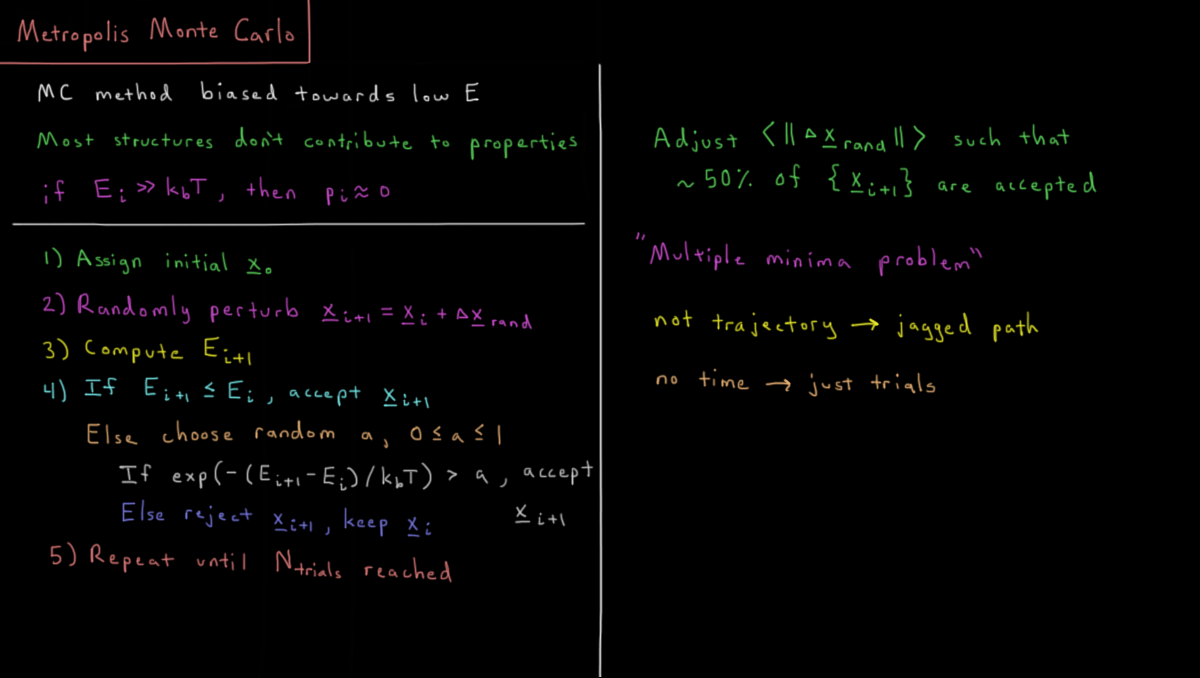 Metropolis Monte Carlo
MC method biased towards low E
Most structures don't contribute to properties
if E_i >> k_bT, then p_i ≈ 0
1) Assign initial x_0
2) Randomly perturb x_{i+1} = x_i + Δx_rand
3) Compute E_{i+1}
4) If E_{i+1} ≤ E_i, accept x_{i+1}
Else choose random a, 0 ≤ a ≤ 1
If exp(-(E_{i+1} - E_i)/k_bT) > a, accept
Else reject x_{i+1}, keep x_i x_{i+1}
5) Repeat until N_trials reached
Adjust <||Δx_rand||> such that
~50% of {x_{i+1}} are accepted
"Multiple minima problem"
not trajectory → jagged path
no time → just trials